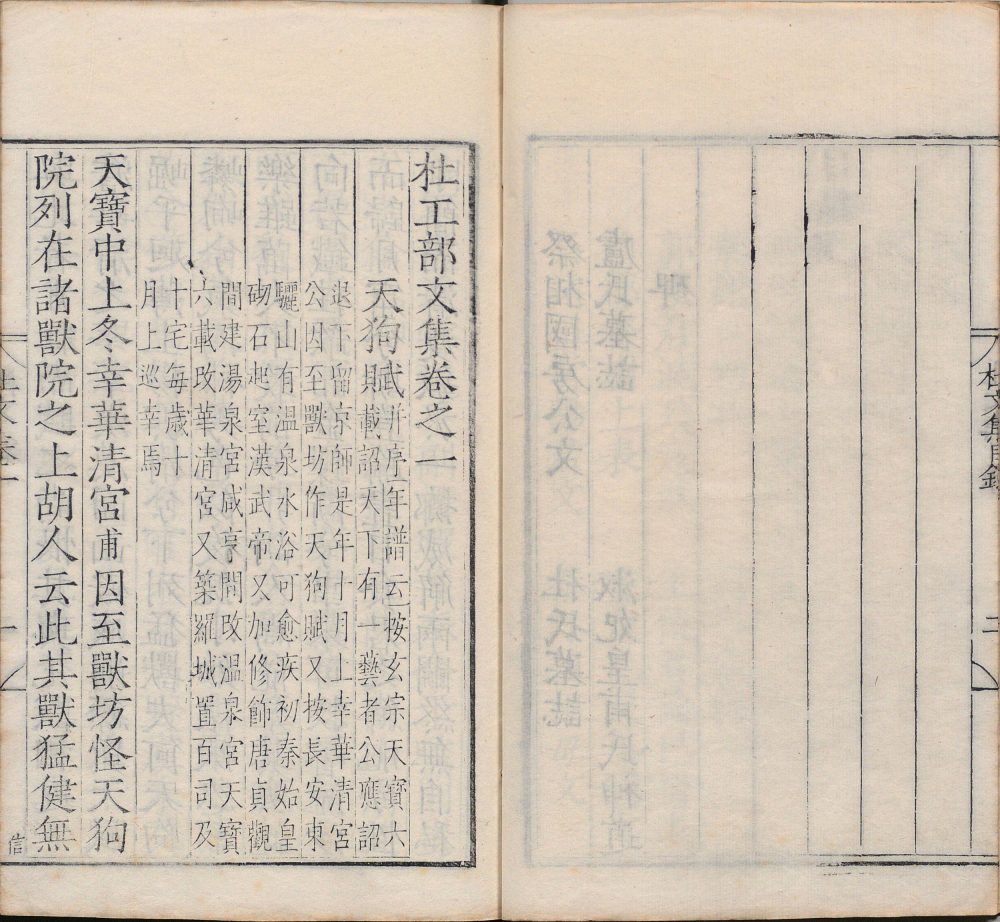 杜文集目錄
二
杜工部文集卷之一
天狗賦并序年譜云按玄宗天寶六
載詔天下有一藝者公應詔
退下留京師是年十月上幸華清宮
公因至獸坊作天狗賦又按長安東
驪山有温泉水浴可愈疾初秦始皇
砌石起室漢武帝又加修飾唐貞觀
間建湯泉宮咸亨間改温泉宮天寶
六載改華清宮又築羅城置百司及
十宅每歲十
月上巡幸焉
天寶中上冬幸華清宮甫因至獸坊怪天狗
院列在諸獸院之上胡人云此其獸猛健無
信
杜文卷一
一